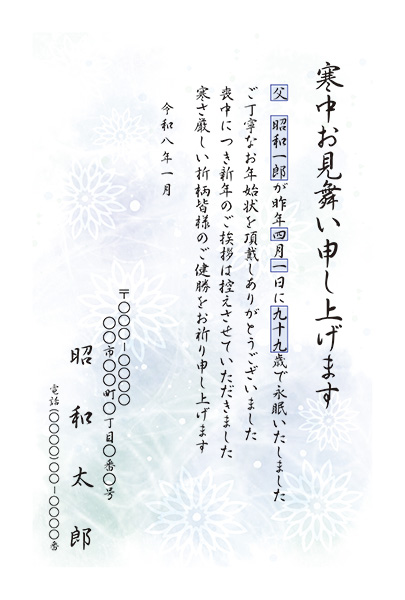 寒中お見舞い申し上げます
父 昭和一郎が昨年四月一日に九十九歳で永眠いたしました
ご丁寧なお年始状を頂戴しありがとうございました
喪中につき新年のご挨拶は控えさせていただきました
寒さ厳しい折柄皆様のご健勝をお祈り申し上げます
令和八年一月
〒〇〇〇－〇〇〇〇
〇〇市〇〇町〇丁目〇番〇号
昭和太郎
電話(〇〇〇〇)〇〇－〇〇〇〇番